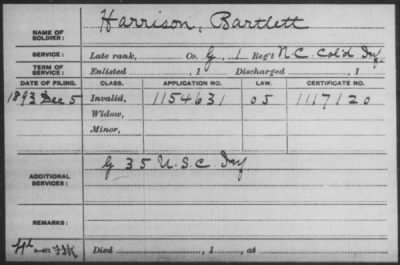 Harrison, Bartlett
NAME OF SOLDIER:
SERVICE: Late rank, Co. G, 1 Reg't N.C. Col'd Inf.
TERM OF SERVICE: Enlisted , 1 Discharged , 1
DATE OF FILING. CLASS. APPLICATION NO. LAW. CERTIFICATE NO.
1893 Dec 5 Invalid, 1154631 05 1117120
Widow,
Minor,
ADDITIONAL SERVICES: G 35 U.S.C. Inf
REMARKS:
Died , 1 , at